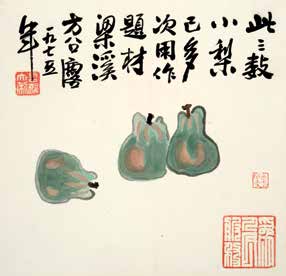 此三数
小梨
已多
次用作
题材
梁溪
方召麐
一九七五
年